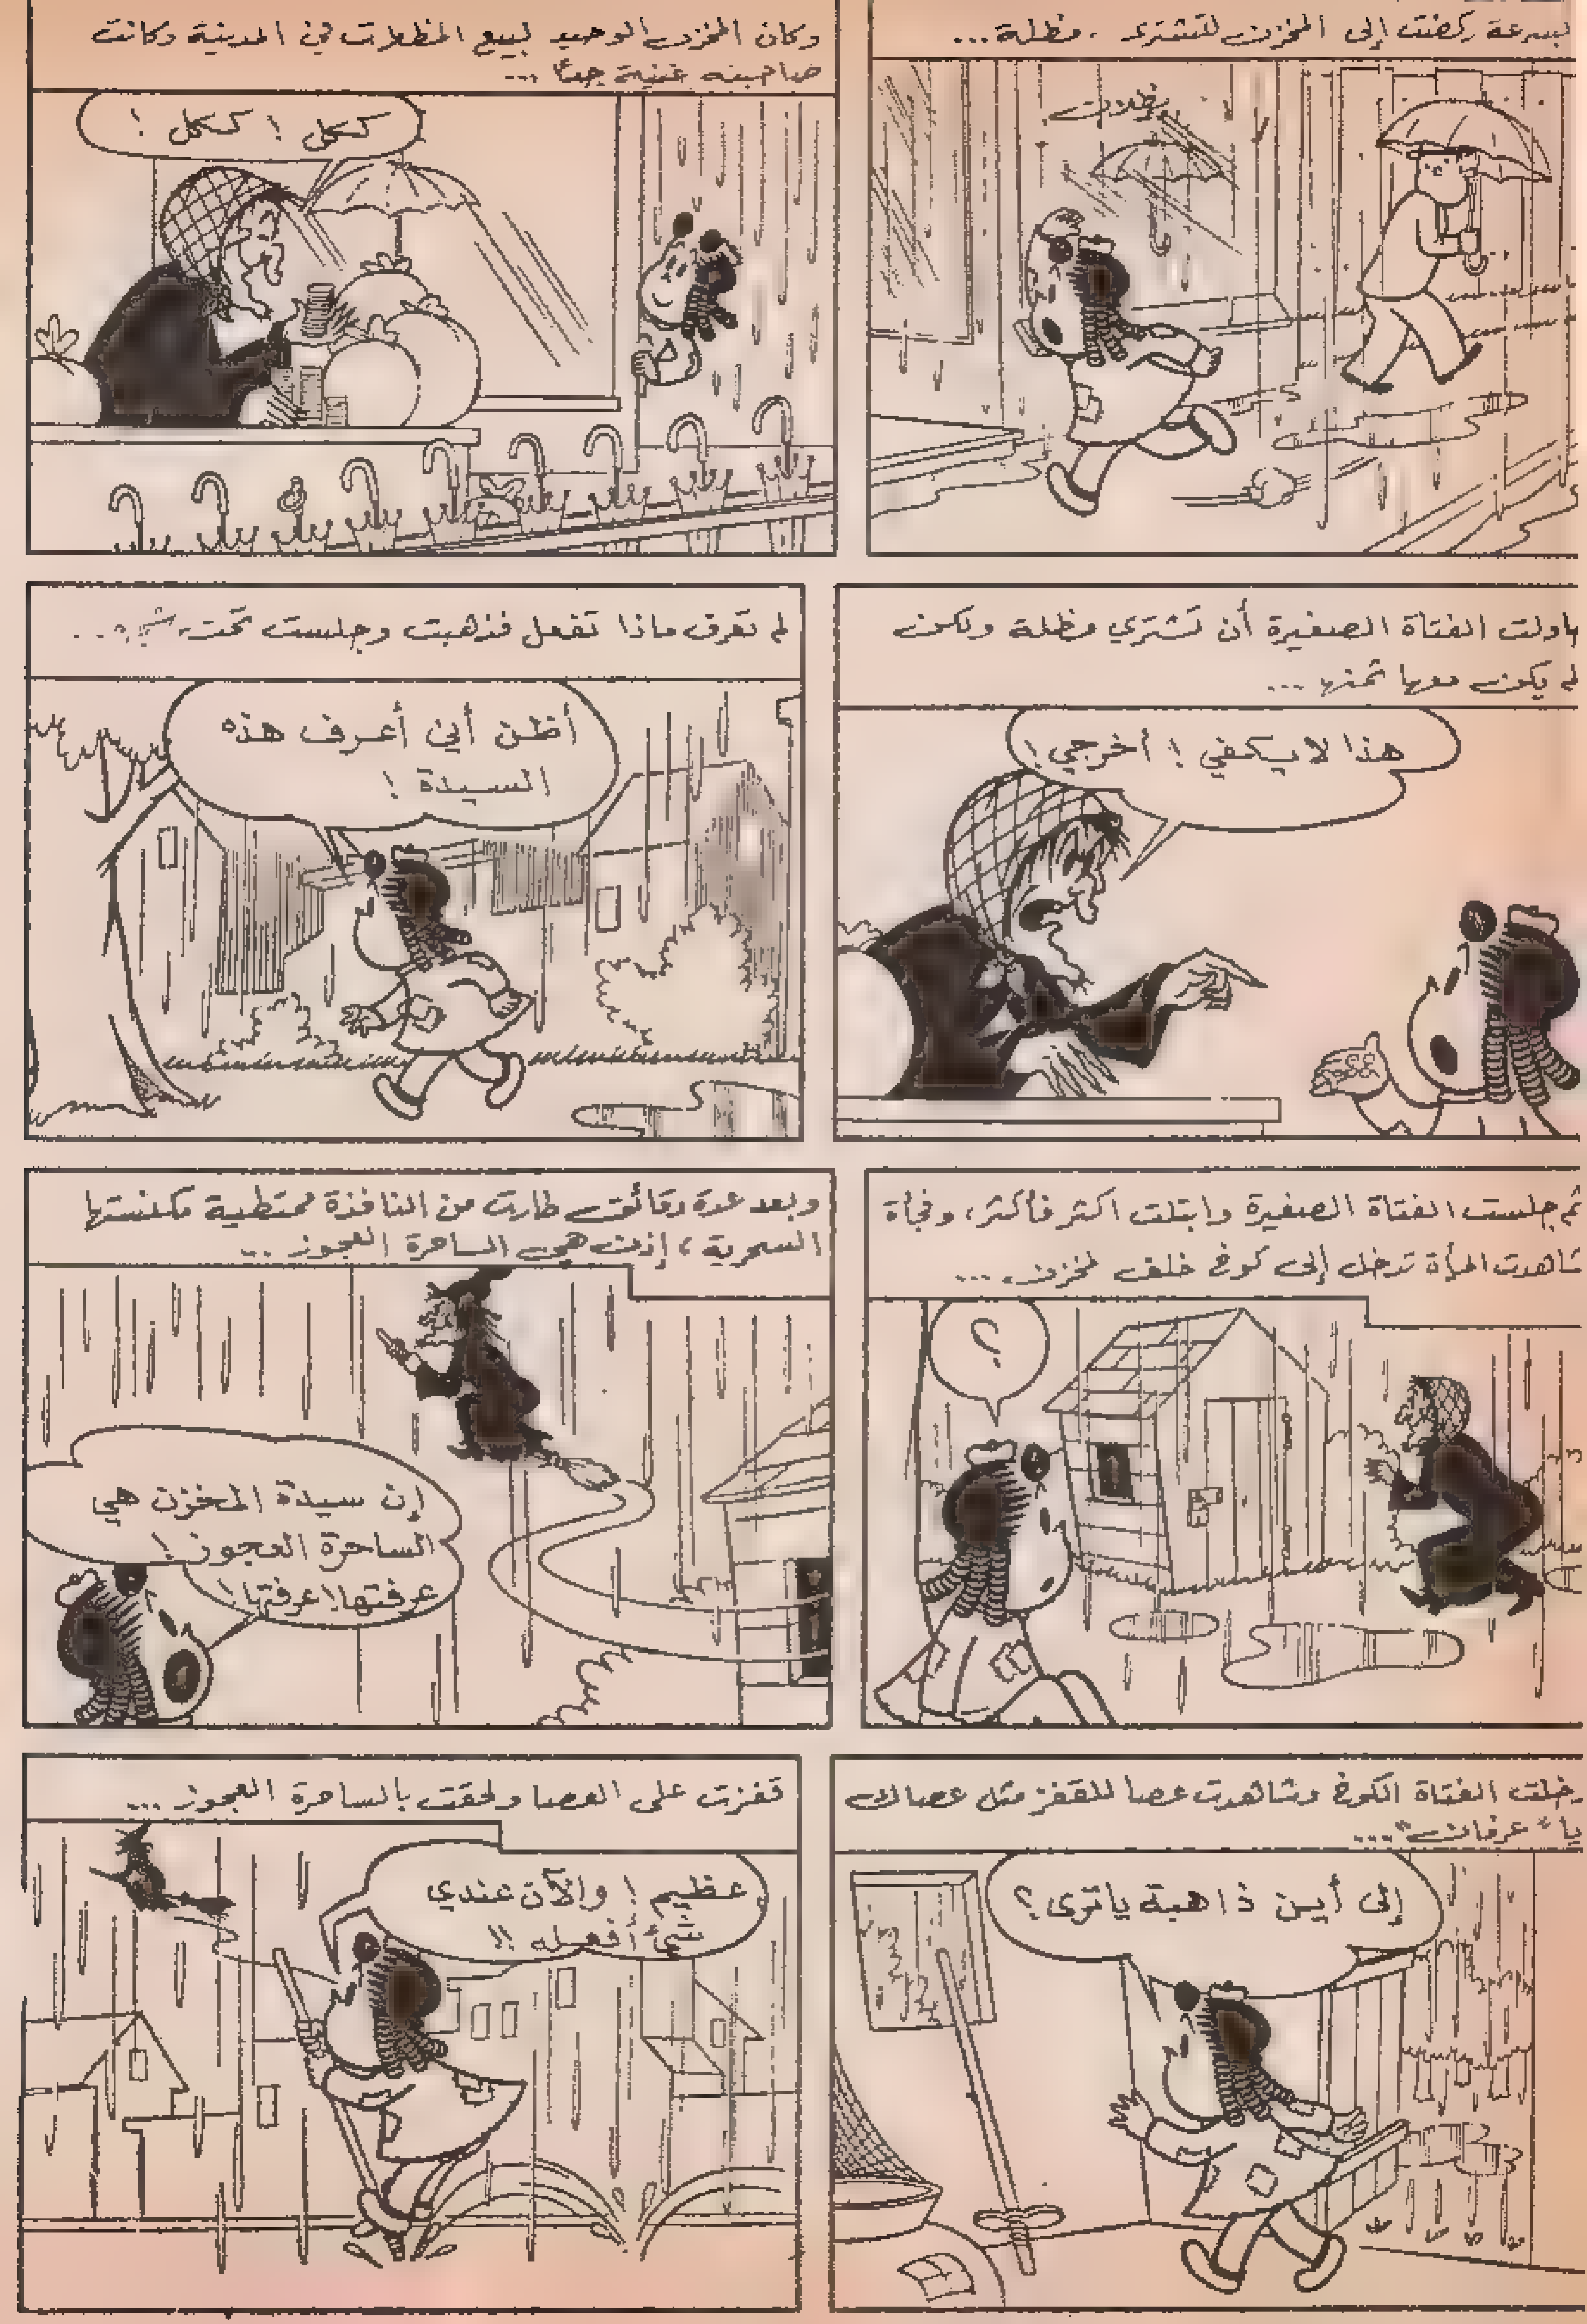 بسرعة ركضت إلى المخزن لتشتري مظلة...
مظلات
وكان المخزن الوحيد لبيع المظلات في المدينة وكانت
صاحبته غنية جداً ...
ككل ! ككل !
حاولت الفتاة الصغيرة أن تشتري مظلة ولكن
لم يكن معها ثمنها ...
هذا لا يكفي ! أخرجي !
لم تعرف ماذا تفعل فذهبت وجلست تحت شجرة...
أظن أني أعرف هذه
السيدة !
ثم جلست الفتاة الصغيرة وابتلت اكثر فأكثر، وفجأة
شاهدت امرأة تدخل إلى كوخ خلف المخزن ...
؟
وبعد عدة دقائق طارت من النافذة ممتطية مكنستها
السحرية ، إذن هي الساحرة العجوز ...
إن سيدة المخزن هي
الساحرة العجوز !
عرفتها ! عرفتها !
دخلت الفتاة الكوخ وشاهدت عصا للقفز مثل عصاك
يا "عرفان"...
إلى أين ذاهبة يا ترى ؟
قفزت على العصا ولحقت بالساحرة العجوز ...
عظيم ! والآن عندي
شئ أفعله !!